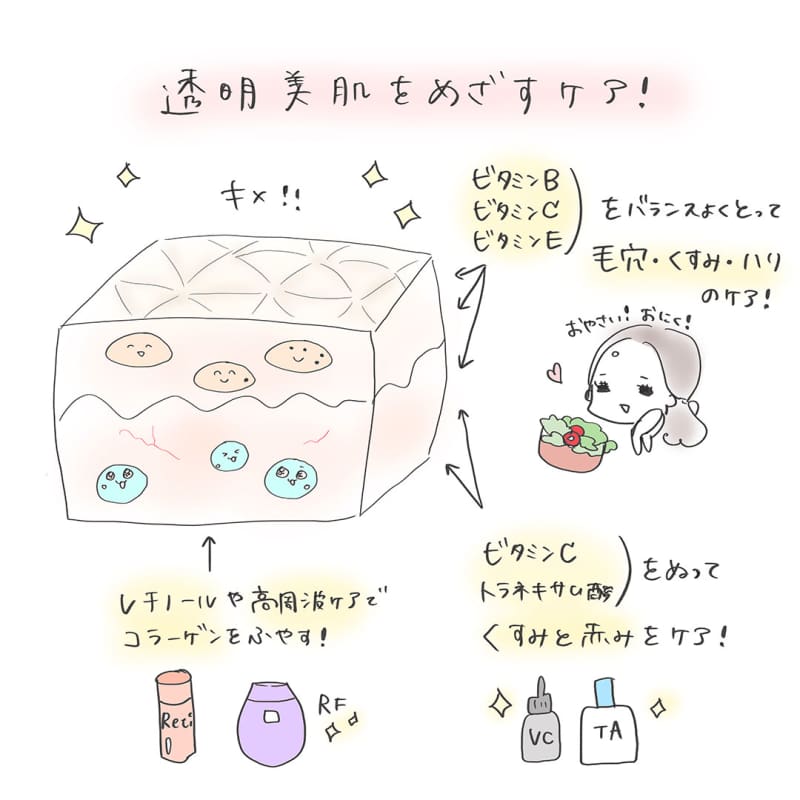 透明美肌をめざすケア!
キメ!!
ビタミンB
ビタミンC
ビタミンE
をバランスよくとって
毛穴・くすみ・ハリ
のケア!
おやさい!おにく!
レチノールや高周波ケアで
コラーゲンをふやす!
Reti
RF
ビタミンC
トラネキサム酸
をぬって
くすみと赤みをケア!
VC
TA